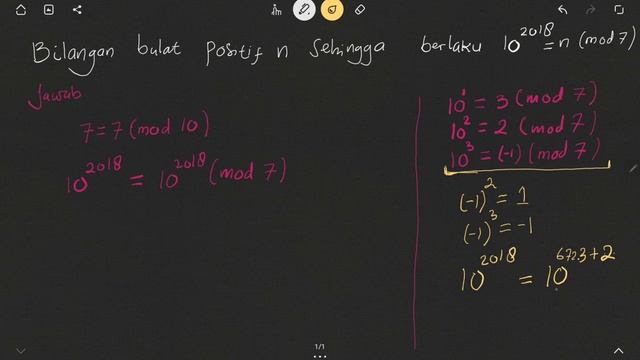 Bilangan bulat positif n sehingga berlaku 10^2018 = n (mod 7)
Jawab
7 = 7 (mod 10)
10^2018 = 10^2018 (mod 7)
10^1 = 3 (mod 7)
10^2 = 2 (mod 7)
10^3 = (-1) (mod 7)
(-1)^2 = 1
(-1)^3 = -1
10^2018 = 10^672.3+2
1/1